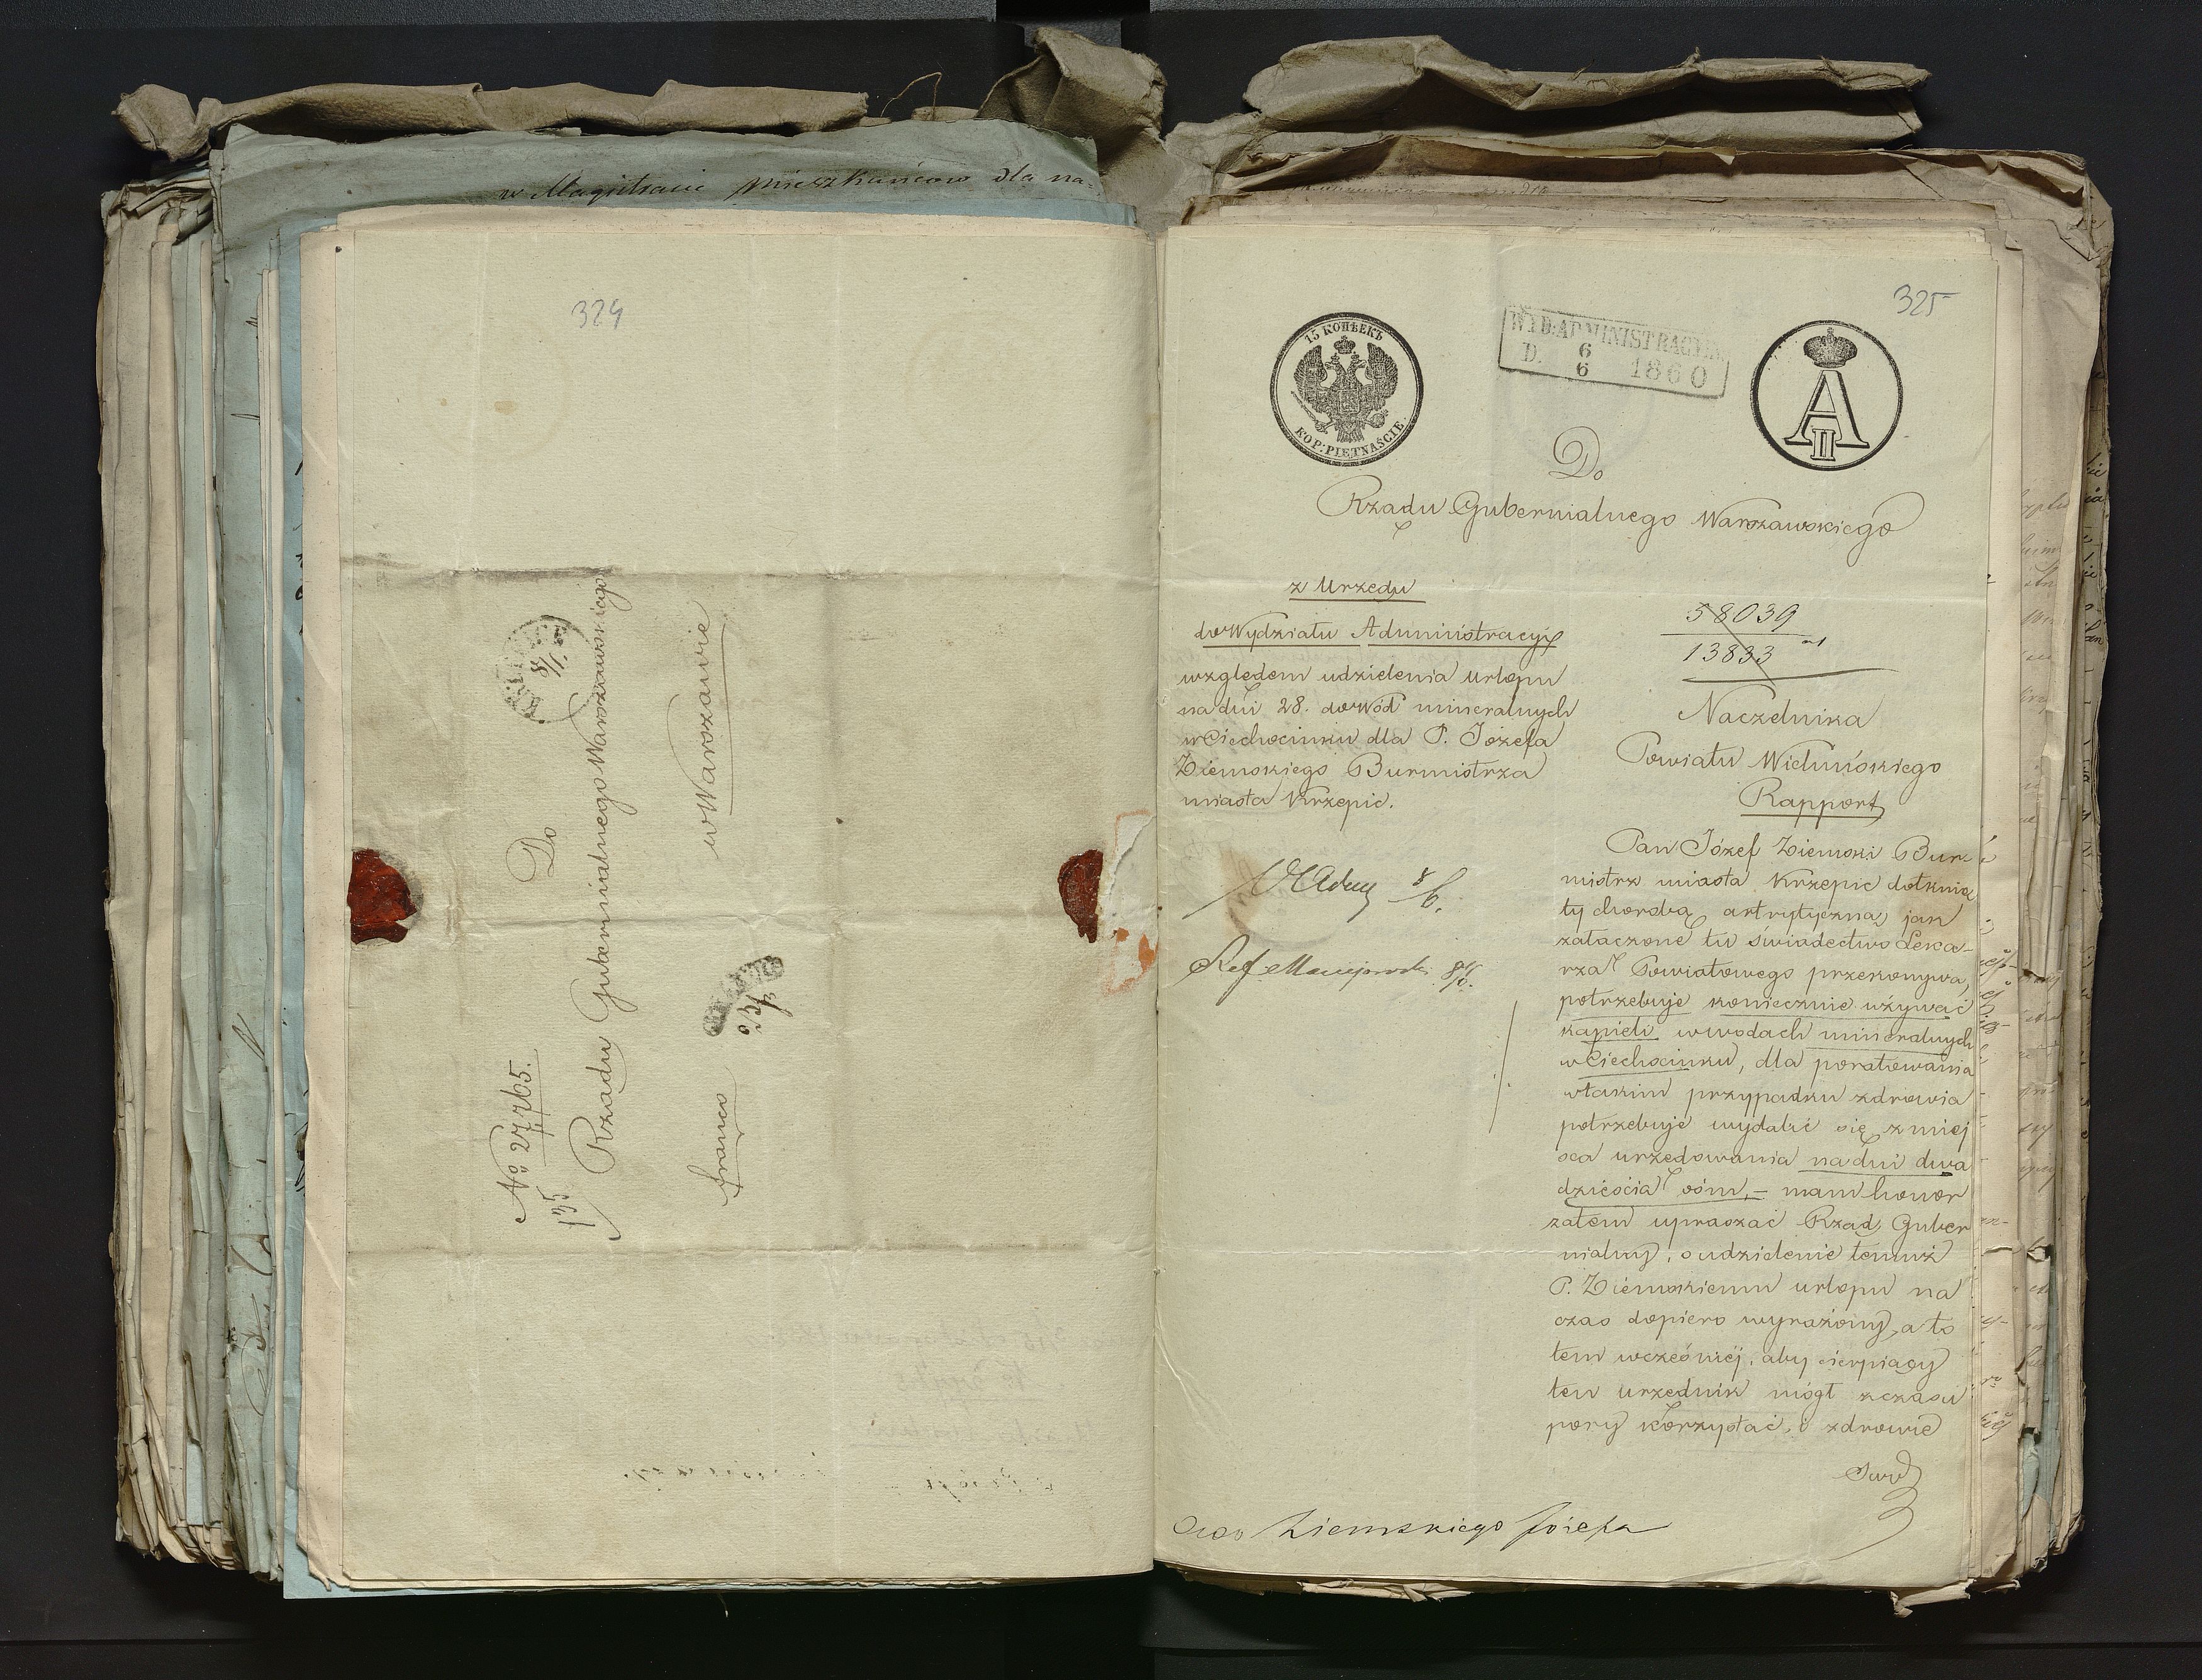 w Magistracie mieszkańców dla na-
324
Do
Rządu Gubernialnego Warszawskiego
w Warszawie
No 27765.
135
franco
325
15 КОПѢЕКЪ
KOP: PIĘTNAŚCIE
WYD: ADMINISTRACYJN
D. 6/6 1860
A II
Do
Rządu Gubernialnego Warszawskiego
z Urzędu
do Wydziału Administracyj
względem udzielenia urlopu
na dni 28. do wód mineralnych
w Ciechocinku dla P. Józefa
Ziemskiego Burmistrza
miasta Krzepic.
58039
13833
Naczelnika
Powiatu Wieluńskiego
Rapport
Pan Józef Ziemski Bur-
mistrz miasta Krzepic dotknię
ty chorobą artrytyczną, jak
załączone tu świadectwo Leka-
rza Powiatowego przekonywa,
potrzebuje koniecznie używać
kąpieli w wodach mineralnych
w Ciechocinku, dla poratowania
w takim przypadku zdrowia
potrzebuje wydalić się z miej
sca urzędowania na dni dwa
dzieścia ośm, – mam honor
zatem upraszać Rząd Guber
nialny, o udzielenie temuż
P. Ziemskiemu urlopu na
czas dopiero wyrażony, a to
tem wcześniej, aby cierpiący
ten urzędnik mógł z czasu
pory korzystać, i zdrowie
swe
Ref Maciejowski 8/6.
Ziemskiego Józefa